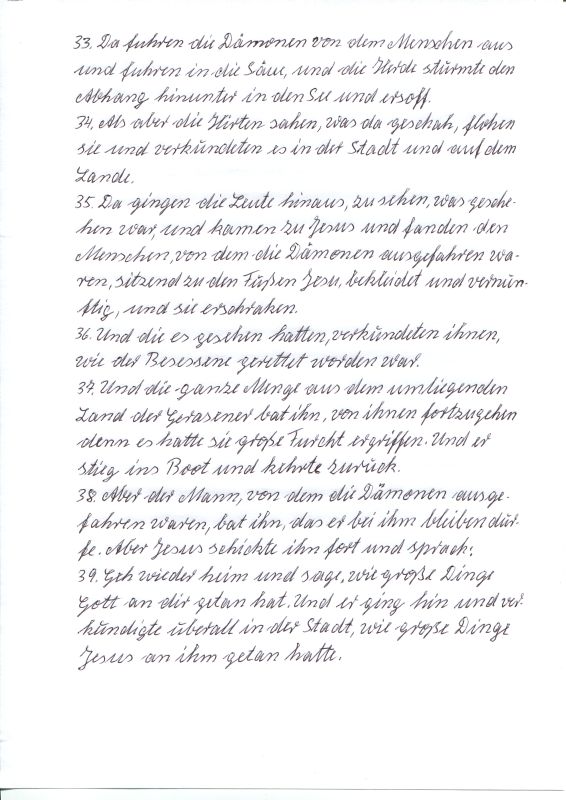 33. Da fuhren die Dämonen von dem Menschen aus
und fuhren in die Säue, und die Herde stürmte den
Abhang hinunter in den See und ersoff.
34. Als aber die Hirten sahen, was da geschah, flohen
sie und verkündeten es in der Stadt und auf dem
Lande.
35. Da gingen die Leute hinaus, zu sehen, was gesche-
hen war, und kamen zu Jesus und fanden den
Menschen, von dem die Dämonen ausgefahren wa-
ren, sitzend zu den Füßen Jesu, bekleidet und vernün-
ftig, und sie erschraken.
36. Und die es gesehen hatten, verkündeten ihnen,
wie der Besessene gerettet worden war.
37. Und die ganze Menge aus dem umliegenden
Land der Gerasener bat ihn, von ihnen fortzugehen
denn es hatte sie große Furcht ergriffen. Und er
stieg ins Boot und kehrte zurück.
38. Aber der Mann, von dem die Dämonen ausge-
fahren waren, bat ihn, das er bei ihm bleiben dür-
fe. Aber Jesus schickte ihn fort und sprach:
39. Geh wieder heim und sage, wie große Dinge
Gott an dir getan hat. Und er ging hin und ver-
kündigte überall in der Stadt, wie große Dinge
Jesus an ihm getan hatte.